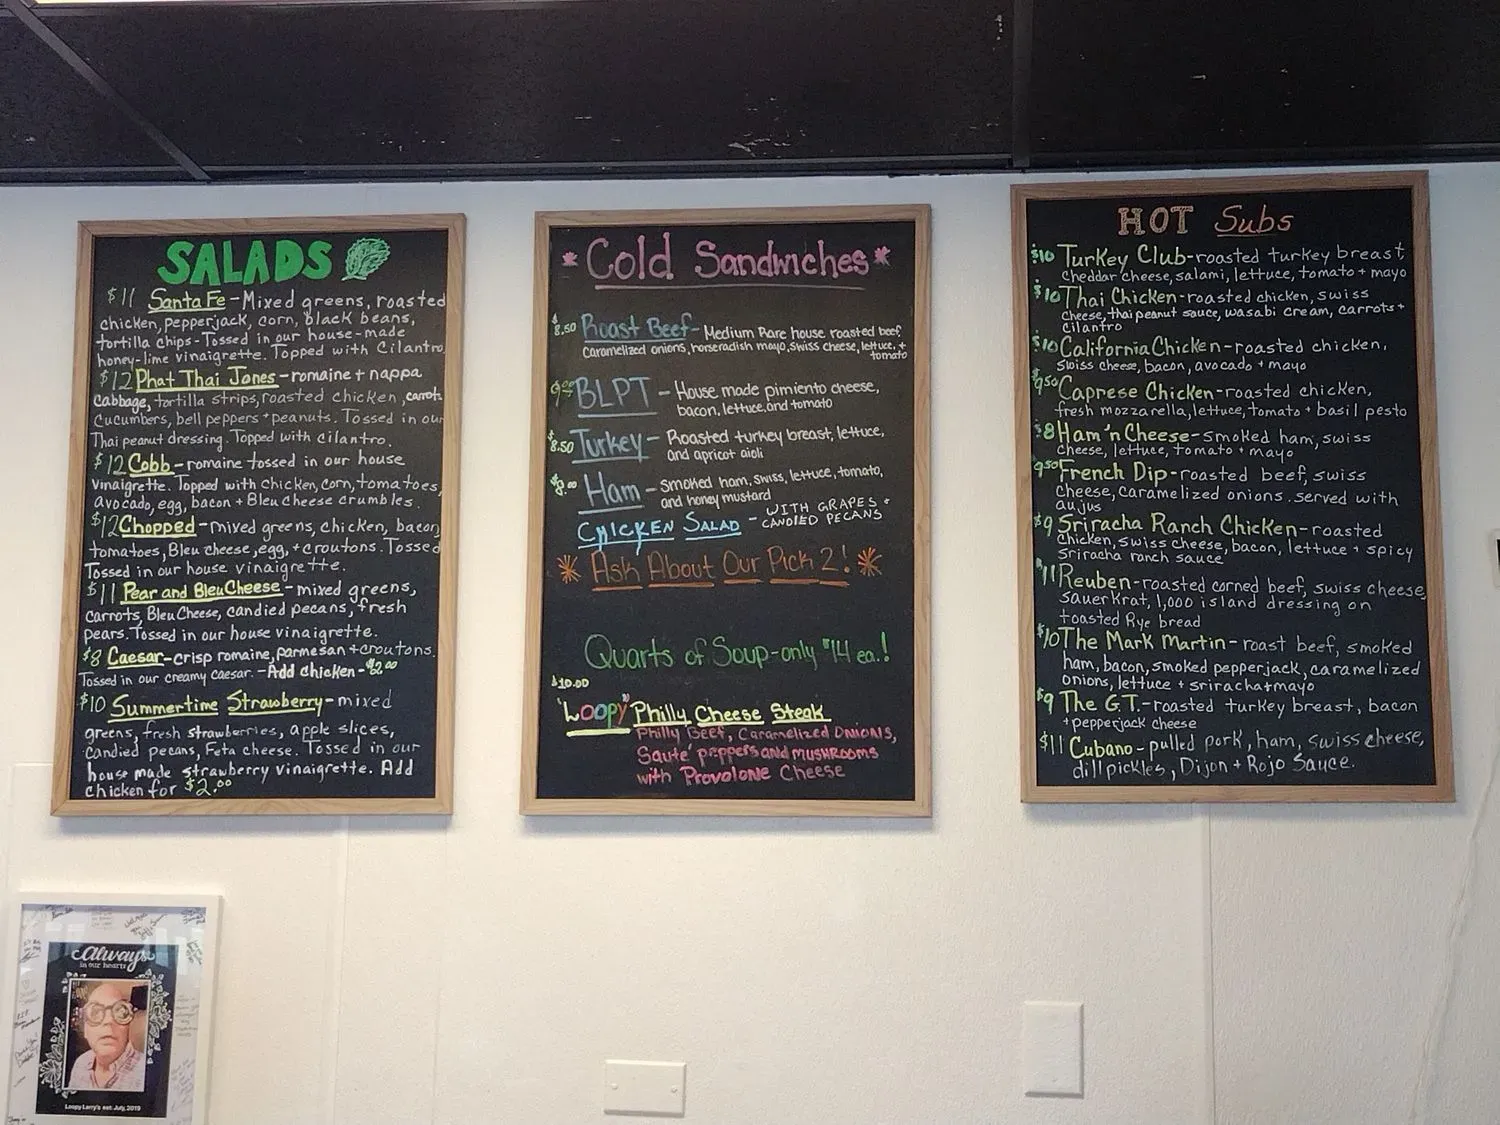 SALADS
$11 Santa Fe - Mixed greens, roasted
chicken, pepperjack, corn, black beans,
tortilla chips - Tossed in our house-made
honey-lime vinaigrette. Topped with Cilantro
$12 Phat Thai Jones - romaine + nappa
cabbage, tortilla strips, roasted chicken, carrots
cucumbers, bell peppers + peanuts. Tossed in our
Thai peanut dressing. Topped with cilantro.
$12 Cobb - romaine tossed in our house
vinaigrette. Topped with chicken, corn, tomatoes,
avocado, egg, bacon + Bleu Cheese crumbles.
$12 Chopped - mixed greens, chicken, bacon,
tomatoes, Bleu cheese, egg, + croutons. Tossed
Tossed in our house vinaigrette.
$11 Pear and Bleu Cheese - mixed greens,
carrots, Bleu Cheese, candied pecans, fresh
pears. Tossed in our house vinaigrette.
$8 Caesar - crisp romaine, parmesan + croutons.
Tossed in our creamy caesar. - Add chicken - $2.00
$10 Summertime Strawberry - mixed
greens, fresh strawberries, apple slices,
candied pecans, Feta cheese. Tossed in our
house made strawberry vinaigrette. Add
chicken for $2.00
* Cold Sandwiches *
$8.50 Roast Beef - Medium Rare house roasted beef
Caramelized onions, horseradish mayo, Swiss cheese, lettuce, +
tomato
9.00 BLPT - House made pimiento cheese,
bacon, lettuce, and tomato
$8.50 Turkey - Roasted turkey breast, lettuce,
and apricot aioli
$8.00 Ham - smoked ham, swiss, lettuce, tomato,
and honey mustard
CHICKEN SALAD - WITH GRAPES +
CANDIED PECANS
Ask About Our Pick 2!
Quarts of Soup - only $14 ea.!
$10.00
"LOOPY" Philly Cheese Steak
Philly Beef, Caramelized ONIONS,
Sauté peppers and MUSHROOMS
with Provolone Cheese
HOT Subs
$10 Turkey Club - roasted turkey breast,
cheddar cheese, salami, lettuce, tomato + mayo
$10 Thai Chicken - roasted chicken, swiss
cheese, thai peanut sauce, wasabi cream, carrots +
cilantro
$10 California Chicken - roasted chicken,
swiss cheese, bacon, avocado + mayo
$9.50 Caprese Chicken - roasted chicken,
fresh mozzarella, lettuce, tomato + basil pesto
$8 Ham 'n Cheese - smoked ham, swiss
cheese, lettuce, tomato + mayo
9.50 French Dip - roasted beef, swiss
cheese, caramelized onions. served with
aujus
$9 Sriracha Ranch Chicken - roasted
chicken, swiss cheese, bacon, lettuce + spicy
sriracha ranch sauce
$11 Reuben - roasted corned beef, swiss cheese,
sauerkrat, 1,000 island dressing on
toasted Rye bread
$10 The Mark Martin - roast beef, smoked
ham, bacon, smoked pepperjack, caramelized
onions, lettuce + sriracha + mayo
$9 The G.T. - roasted turkey breast, bacon
+ pepperjack cheese
$11 Cubano - pulled pork, ham, swiss cheese,
dill pickles, Dijon + Rojo Sauce.
Always
in our hearts
Loopy Larry's est. July, 2019